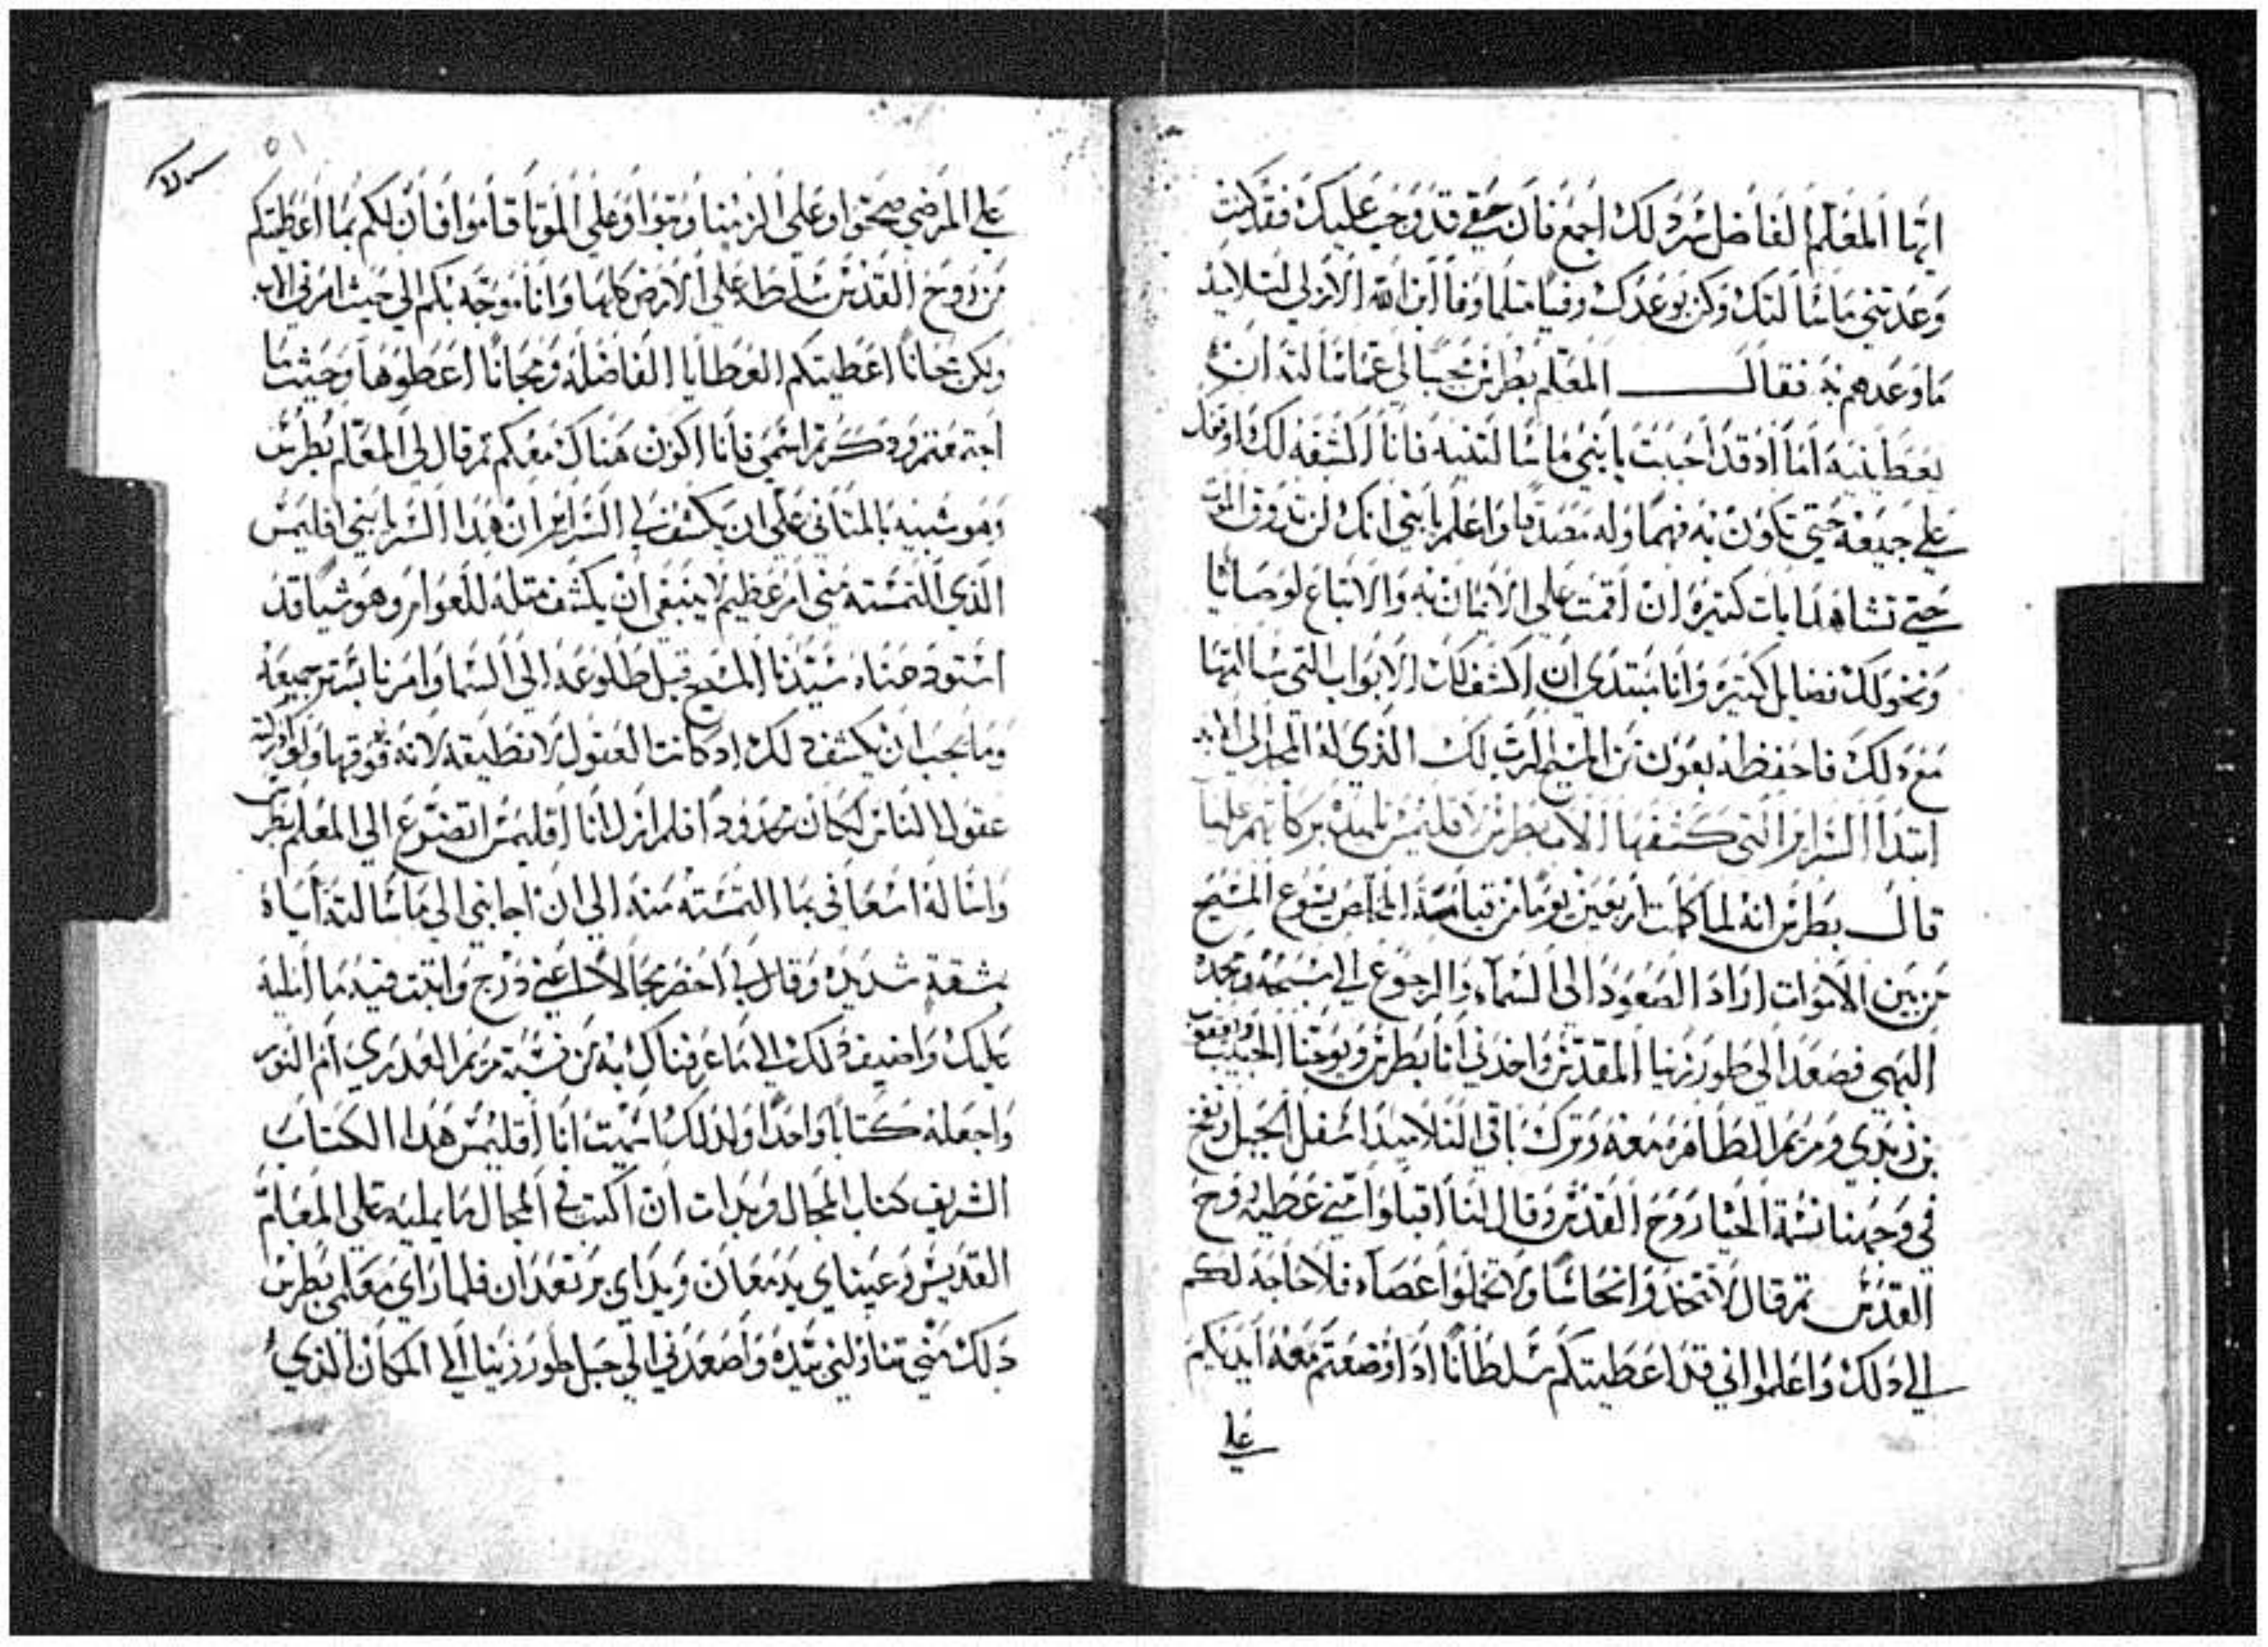 ايها المعلم الفاضل شرد لك اجمع فان حقي قد وجب عليك فقد كنت
وعدتني ماسالتك وكن بوعدك وفيا متلما وفا ابن الله الازلي لتلاميده
ما وعدهم به فقال المعلم بطرس مجيبا لي عما سالته ان
يعطينيه اما اد قد احببت يابني ما سالتنيه فانا اكشفه لك
علي جميعه حتي تكون به فهما وله مصدقا واعلم يابني انك لن تدوق الموت
حتي تشاهد ايات كتيره ان اقمت علي الايمان به والاتباع لوصايا
ونخولك فضايل كتيره وانا مبتدي ان اكشف لك الابواب التي سالتها
مع دلك فاحفظه بعون من المسيح الرب لك الذي له المجد الي الابد
ابتدا السراير التي كشفها الاب بطرس لاقليمس تلميده بركاتهم علينا
قال بطرس انه لما كملت اربعين يوما من قيامة المخلص يسوع المسيح
من بين الاموات اراد الصعود الي السماء والرجوع الي مسبحه ومجده
البهي فصعد الي طور زيتا المقدس واخدني انا بطرس ويوحنا الحبيب واخوه يعقوب
بن زبدي ومريم الطاهره معه وترك باقي التلاميد اسفل الجبل ونفخ
في وجهنا نسمة الحيا روح القدس وقال لنا اقبلوا مني عطيه روح
القدس تم قال لا تتخدوا نحاسا ولا تحملوا عصاه فلا حاجه لكم
الي دلك واعلموا اني قد اعطيتكم سلطانا ادا وضعتم معه ايديكم
علي
٥١
علي المرضي صحوا وعلي الزمنا وتبوا وعلي الموتا قاموا فان لكم بما اعطيتكم
من روح القدس سلطه علي الارض كلها وانا موجه بكم الي حيث امرني الاب
ولكن مجانا اعطيتكم العطايا الفاضله ومجانا اعطوها وحيث ما
اجتمعتم ودكرتم اسمي فانا اكون هناك معكم تم قال لي المعلم بطرس
وهو شبيه بالمتاني علي ان يكشف لي السراير ان هدا السر يابني اقليمس
الذي التمسته مني امر عظيم لا ينبغي ان يكشف متله للعوام وهو شيا قد
استودعناه سيدنا المسيح قبل طلوعه الي السما وامرنا بستر جميعه
وما يجب ان يكشف لك اد كانت العقول لا تطيقه لانه فوقها ولو
عقول الناس لكان محدودا فلم ازل انا اقليمس اتضرع الي المعلم بطرس
واساله اسعافي بما التمسته منه الي ان اجابني الي ما سالته اياه
بشقة شديده وقال لي احضر مجالا اعني درج واتبت فيه ما امليه
عليك واضيف دلك الي ما عرفناك به من نسبة مريم العدري ام النور
واجعله كتابا واحدا ولدلك سميت انا اقليمس هدا الكتاب
الشريف كتاب المجال وبدات ان اكتب في المجال ما يمليه علي المعلم
القديس وعيناي يدمعان ويداي يرتعدان فلما راي معلمي بطرس
دلك مني تناولني بيده واصعدني الي جبل طور زيتا الي المكان الذي